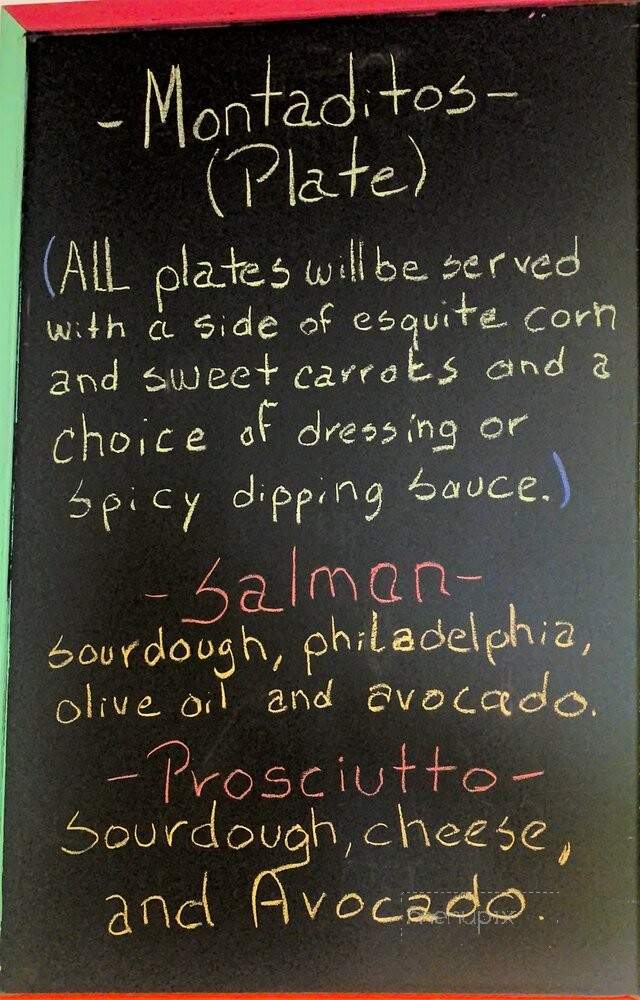 - Montaditos -
(Plate)
(ALL plates will be served
with a side of esquite corn
and sweet carrots and a
choice of dressing or
spicy dipping sauce.)
- Salmon -
sourdough, philadelphia,
olive oil and avocado.
- Prosciutto -
sourdough, cheese,
and Avocado.
menupix